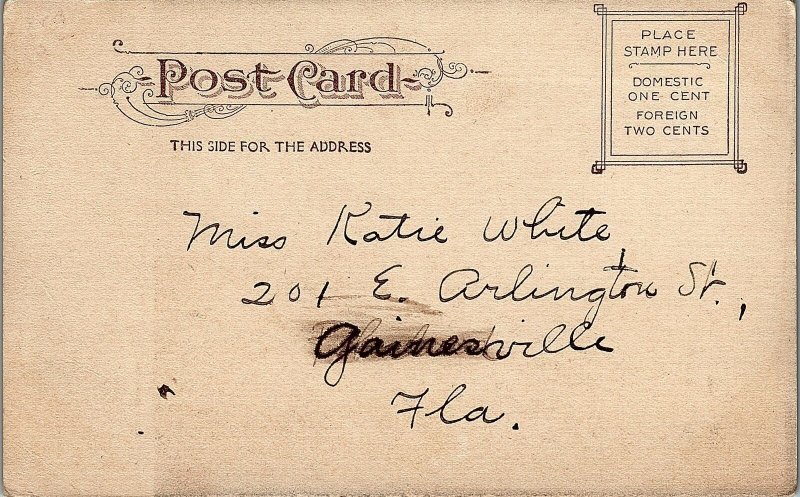 Post Card
THIS SIDE FOR THE ADDRESS
PLACE
STAMP HERE
DOMESTIC
ONE CENT
FOREIGN
TWO CENTS
Miss Katie White,
201 E. Arlington St.,
Gainesville
Fla.